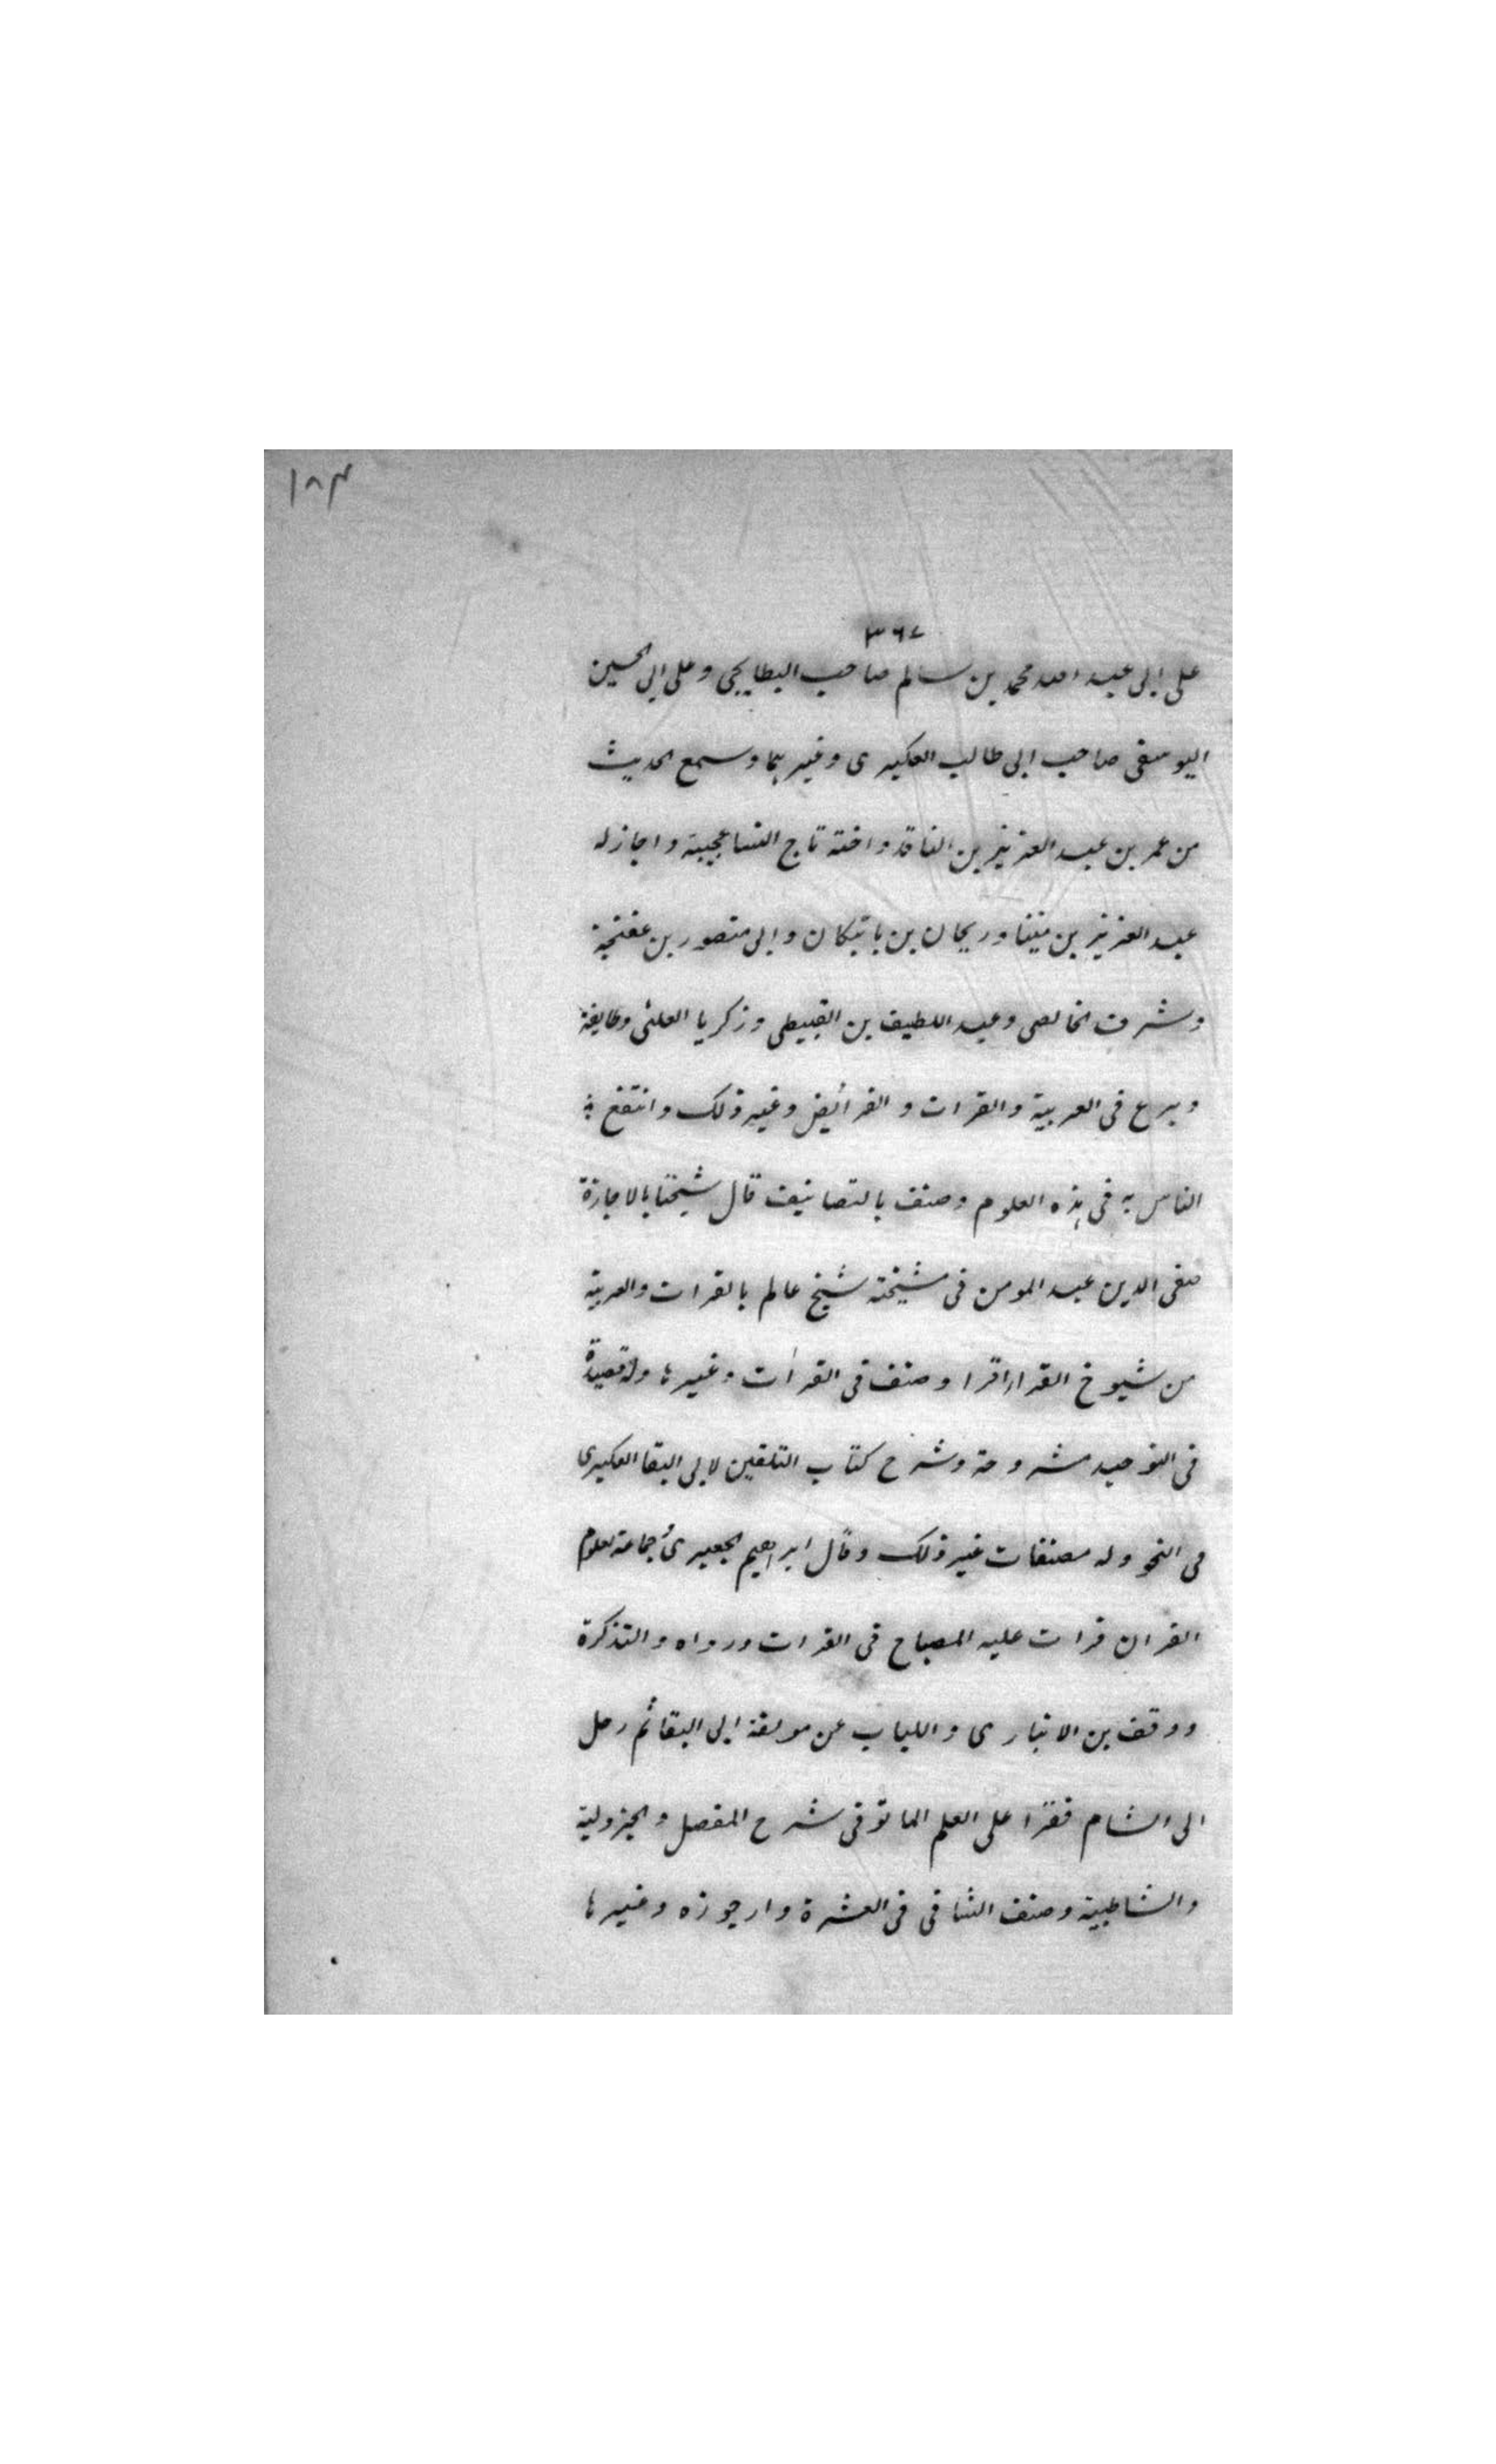 ١٨٣
٣٦٧
على ابى عبد الله محمد بن سالم صاحب البطايحى وعلى ابى الحسين
اليوسفى صاحب ابى طالب العكبرى وغيرهما وسمع الحديث
من عمر بن عبد العزيز بن الناقد واخته تاج النسا عجيبة واجاز له
عبد العزيز بن منينا وريحان بن باتيكان وابى منصور بن عفتجة
وشرف الخالصى وعبد اللطيف بن القبيطى وزكريا العلثى وطايفة
وبرع فى العربية والقرات والفرائض وغير ذلك وانتفع به
الناس به فى هذه العلوم وصنف بالتصانيف قال شيخنا بالاجازة
صفى الدين عبد المومن فى مشيخته شيخ عالم بالقرات والعربية
من شيوخ القرا اقرا وصنف فى القرات وغيرها وله قصيدة
فى التوحيد مشروحة وشرح كتاب التلقين لابى البقا العكبرى
فى النحو وله مصنفات غير ذلك وقال ابراهيم الجعبرى جماعة لعلوم
القران قرات عليه المصباح فى القرات ورواه والتذكرة
ووقف بن الانبارى واللباب عن مولفة ابى البقا ثم رحل
الى الشام فقرا على العلم الماتوفى شرح المفصل والجزولية
والشاطبية وصنف الشافى فى العشرة وارجوزه وغيرها